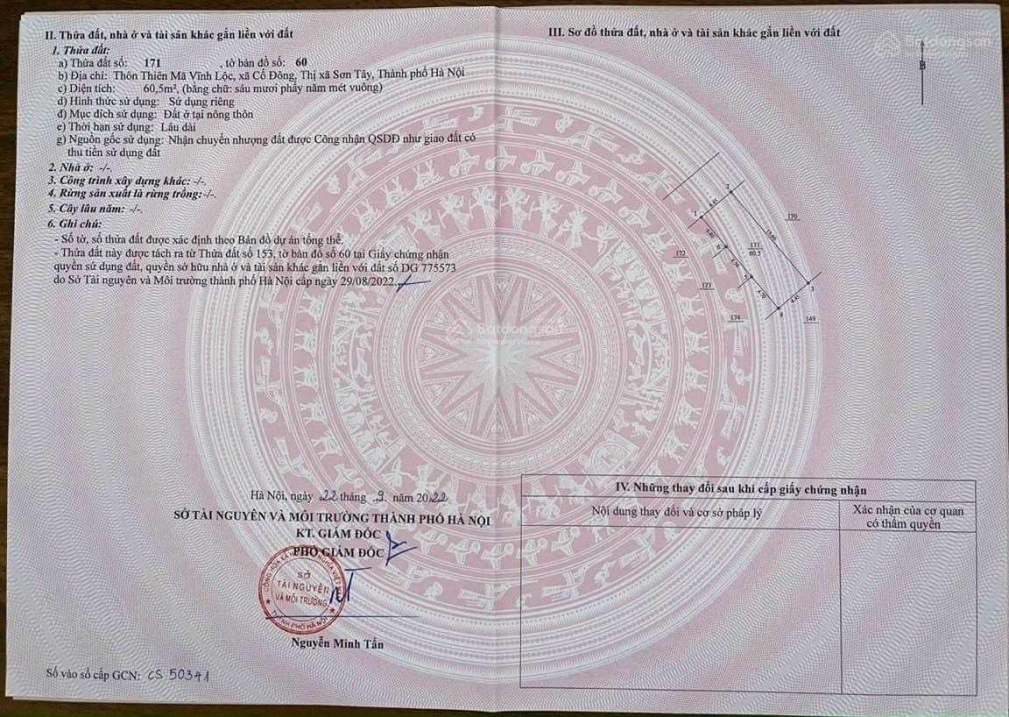 II. Thửa đất, nhà ở và tài sản khác gắn liền với đất
1. Thửa đất:
a) Thửa đất số: 171 , tờ bản đồ số: 60
b) Địa chỉ: Thôn Thiên Mã Vĩnh Lộc, xã Cổ Đông, Thị xã Sơn Tây, Thành phố Hà Nội
c) Diện tích: 60,5m², (bằng chữ: sáu mươi phẩy năm mét vuông)
d) Hình thức sử dụng: Sử dụng riêng
đ) Mục đích sử dụng: Đất ở tại nông thôn
e) Thời hạn sử dụng: Lâu dài
g) Nguồn gốc sử dụng: Nhận chuyển nhượng đất được Công nhận QSDĐ như giao đất có
thu tiền sử dụng đất
2. Nhà ở: -/-.
3. Công trình xây dựng khác: -/-.
4. Rừng sản xuất là rừng trồng: -/-.
5. Cây lâu năm: -/-.
6. Ghi chú:
- Số tờ, số thửa đất được xác định theo Bản đồ dự án tổng thể.
- Thửa đất này được tách ra từ Thửa đất số 153, tờ bản đồ số 60 tại Giấy chứng nhận
quyền sử dụng đất, quyền sở hữu nhà ở và tài sản khác gắn liền với đất số DG 775573
do Sở Tài nguyên và Môi trường thành phố Hà Nội cấp ngày 29/08/2022.
Hà Nội, ngày 22 tháng 9 năm 2022
SỞ TÀI NGUYÊN VÀ MÔI TRƯỜNG THÀNH PHỐ HÀ NỘI
KT. GIÁM ĐỐC
PHÓ GIÁM ĐỐC
SỞ
TÀI NGUYÊN
VÀ MÔI TRƯỜNG
THÀNH PHỐ HÀ NỘI
Nguyễn Minh Tấn
Số vào sổ cấp GCN: CS 50341
III. Sơ đồ thửa đất, nhà ở và tài sản khác gắn liền với đất
Batdongsan
B
2
1
170
172
171
60.5
6
5
173
3
4
174
149
Batdongsan
IV. Những thay đổi sau khi cấp giấy chứng nhận
Nội dung thay đổi và cơ sở pháp lý
Xác nhận của cơ quan
có thẩm quyền